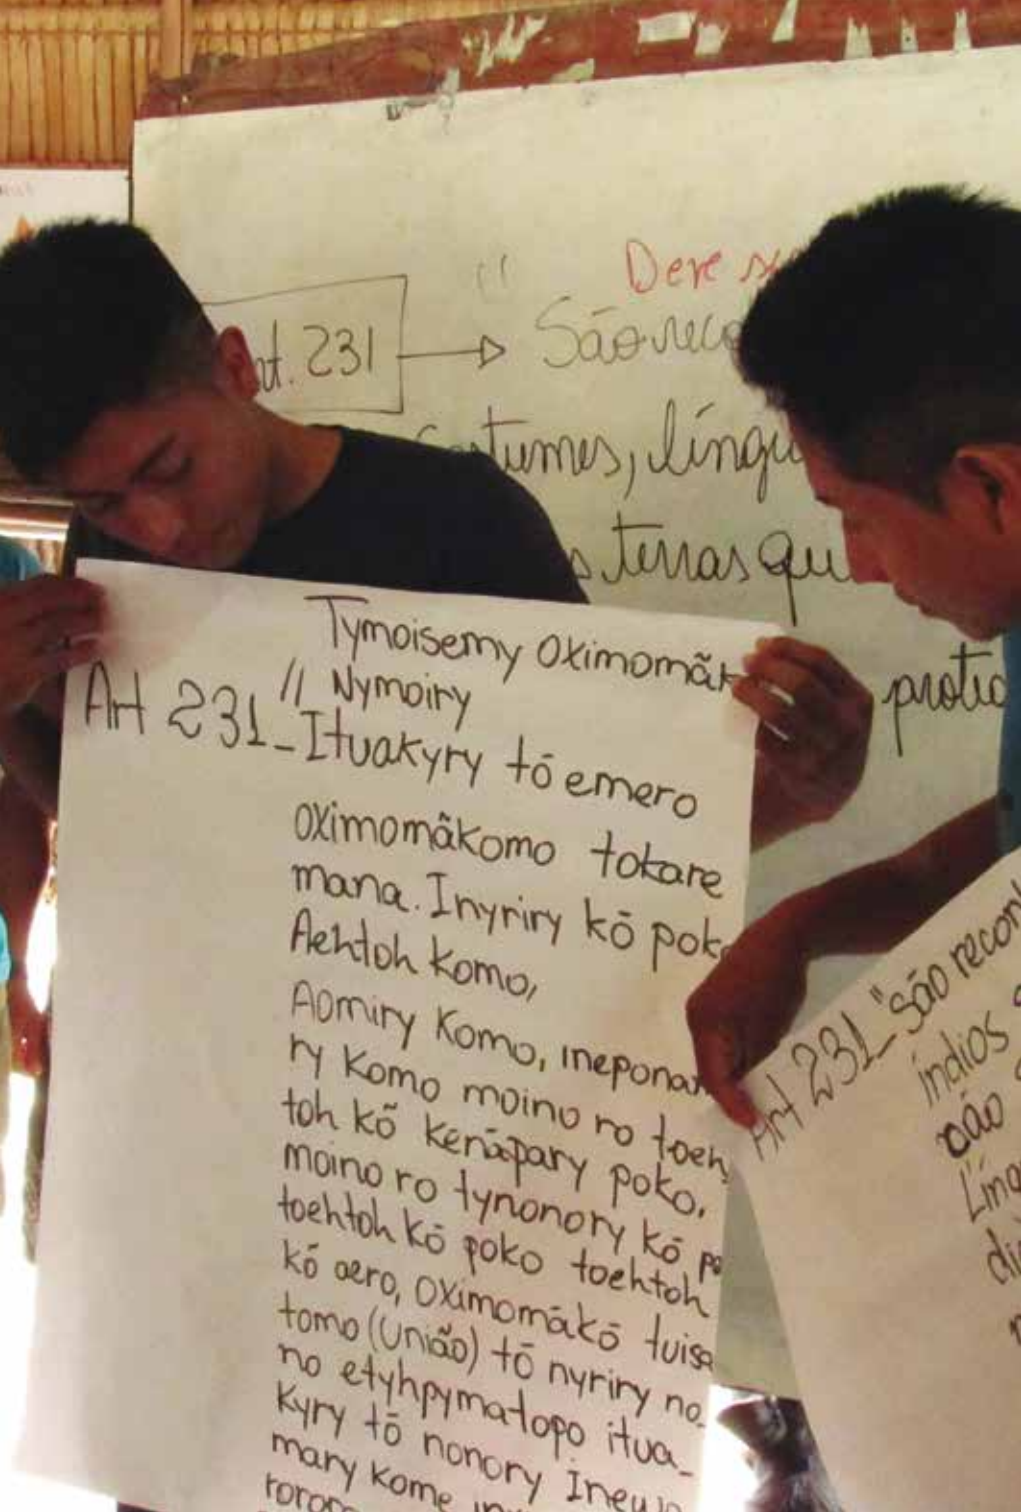 Dere
São reco
231
Costumes, língu
terras qu
protic
Tymoisemy Oximomãk
" Nymoiry
Art 231_Ituakyry tõ emero
Oximomãkomo tokare
mana. Inyriry kõ poko
Aehtoh komo,
Aomiry Komo, ineponar
ry komo moino ro toeh
toh kõ kenãpary poko,
moino ro tynonory kõ po
toehtoh kõ poko toehtoh
kõ aero, Oximomãkõ tuisa
tomo (União) tõ nyriry no_
no etyhpymatopo itua_
kyry tõ nonory
mary kome
Art 231_"São recon
índios
Líng